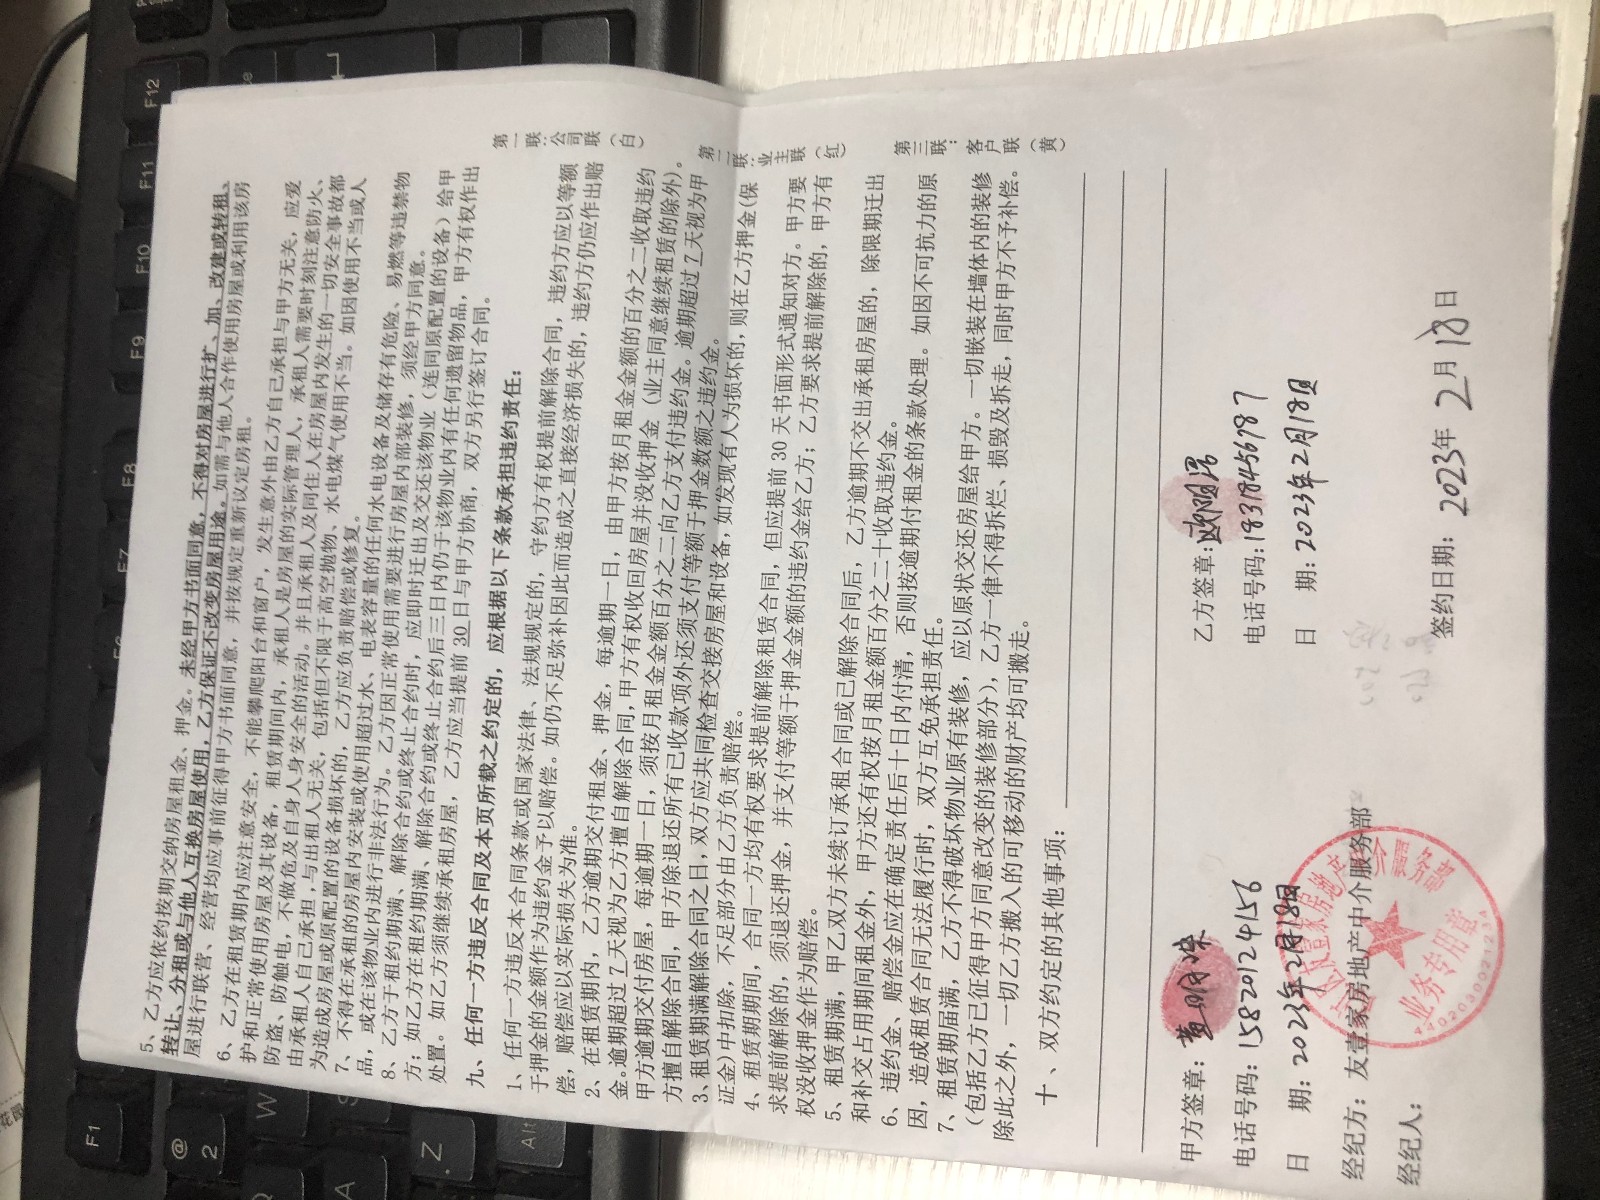 5、乙方应依约按期交纳房屋租金、押金。未经甲方书面同意，不得对房屋进行扩、加、改建或转租、
转让、分租或与他人互换房屋使用，乙方保证不改变房屋用途。如需与他人合作使用房屋或利用该房
屋进行联营、经营均应事前征得甲方书面同意，并按规定重新议定房租。
6、乙方在租赁期内应注意安全，不能攀爬阳台和窗户，发生意外由乙方自己承担与甲方无关，应爱
护和正常使用房屋及其设备，租赁期间内，承租人是房屋的实际管理人，承租人需要时刻注意防火、
防盗、防触电，不做危及自身人身安全的活动。并且承租人及同住人在房屋内发生的一切安全事故都
由承租人自己承担，与出租人无关，包括但不限于高空抛物、水电煤气使用不当。如因使用不当或人
为造成房屋或原配置的设备损坏的，乙方应负责赔偿或修复。
7、不得在承租的房屋内安装或使用超过水、电表容量的任何水电设备及储存有危险、易燃等违禁物
品，或在该物业内进行非法行为。乙方因正常使用需要进行房屋内部装修，须经甲方同意。
8、乙方于租约期满、解除合约或终止合约时，应即时迁出及交还该物业（连同原配置的设备）给甲
方；如乙方在租约期满、解除合约或终止合约后三日内仍于该物业内有任何遗留物品，甲方有权作出
处置。如乙方须继续承租房屋，乙方应当提前 30 日与甲方协商，双方另行签订合同。
九、任何一方违反合同及本页所载之约定的，应根据以下条款承担违约责任：
1、任何一方违反本合同条款或国家法律、法规规定的，守约方有权提前解除合同，违约方应以等额
于押金的金额作为违约金予以赔偿。如仍不足弥补因此而造成之直接经济损失的，违约方仍应作出赔
偿，赔偿应以实际损失为准。
2、在租赁期内，乙方逾期交付租金、押金，每逾期一日，由甲方按月租金金额的百分之二收取违约
金。逾期超过 7 天视为乙方擅自解除合同，甲方有权收回房屋并没收押金（业主同意继续租赁的除外）。
甲方逾期交付房屋，每逾期一日，须按月租金金额百分之二向乙方支付违约金。逾期超过 7 天视为甲
方擅自解除合同，甲方除退还所有已收款项外还须支付等额于押金数额之违约金。
3、租赁期满解除合同之日，双方应共同检查交接房屋和设备，如发现有人为损坏的，则在乙方押金(保
证金）中扣除，不足部分由乙方负责赔偿。
4、租赁期期间，合同一方均有权要求提前解除租赁合同，但应提前 30 天书面形式通知对方。甲方要
求提前解除的，须退还押金，并支付等额于押金金额的违约金给乙方；乙方要求提前解除的，甲方有
权没收押金作为赔偿。
5、租赁期满，甲乙双方未续订承租合同或已解除合同后，乙方逾期不交出承租房屋的，除限期迁出
和补交占用期间租金外，甲方还有权按月租金额百分之二十收取违约金。
6、违约金、赔偿金应在确定责任后十日内付清，否则按逾期付租金的条款处理。如因不可抗力的原
因，造成租赁合同无法履行时，双方互免承担责任。
7、租赁期届满，乙方不得破坏物业原有装修，应以原状交还房屋给甲方。一切嵌装在墙体内的装修
（包括乙方已征得甲方同意改变的装修部分），乙方一律不得拆烂、损毁及拆走，同时甲方不予补偿。
除此之外，一切乙方搬入的可移动的财产均可搬走。
十、双方约定的其他事项：
第一联：公司联（白）
第二联：业主联（红）
第三联：客户联（黄）
甲方签章：
乙方签章：欧明
电话号码：15820124156
电话号码：18318456987
日 期：2023年2月18日
日 期：2023年2月18日
经纪方：友壹家房地产中介服务部
经纪人：
签约日期：2023年2月18日
友壹家房地产中介服务部
业务专用章